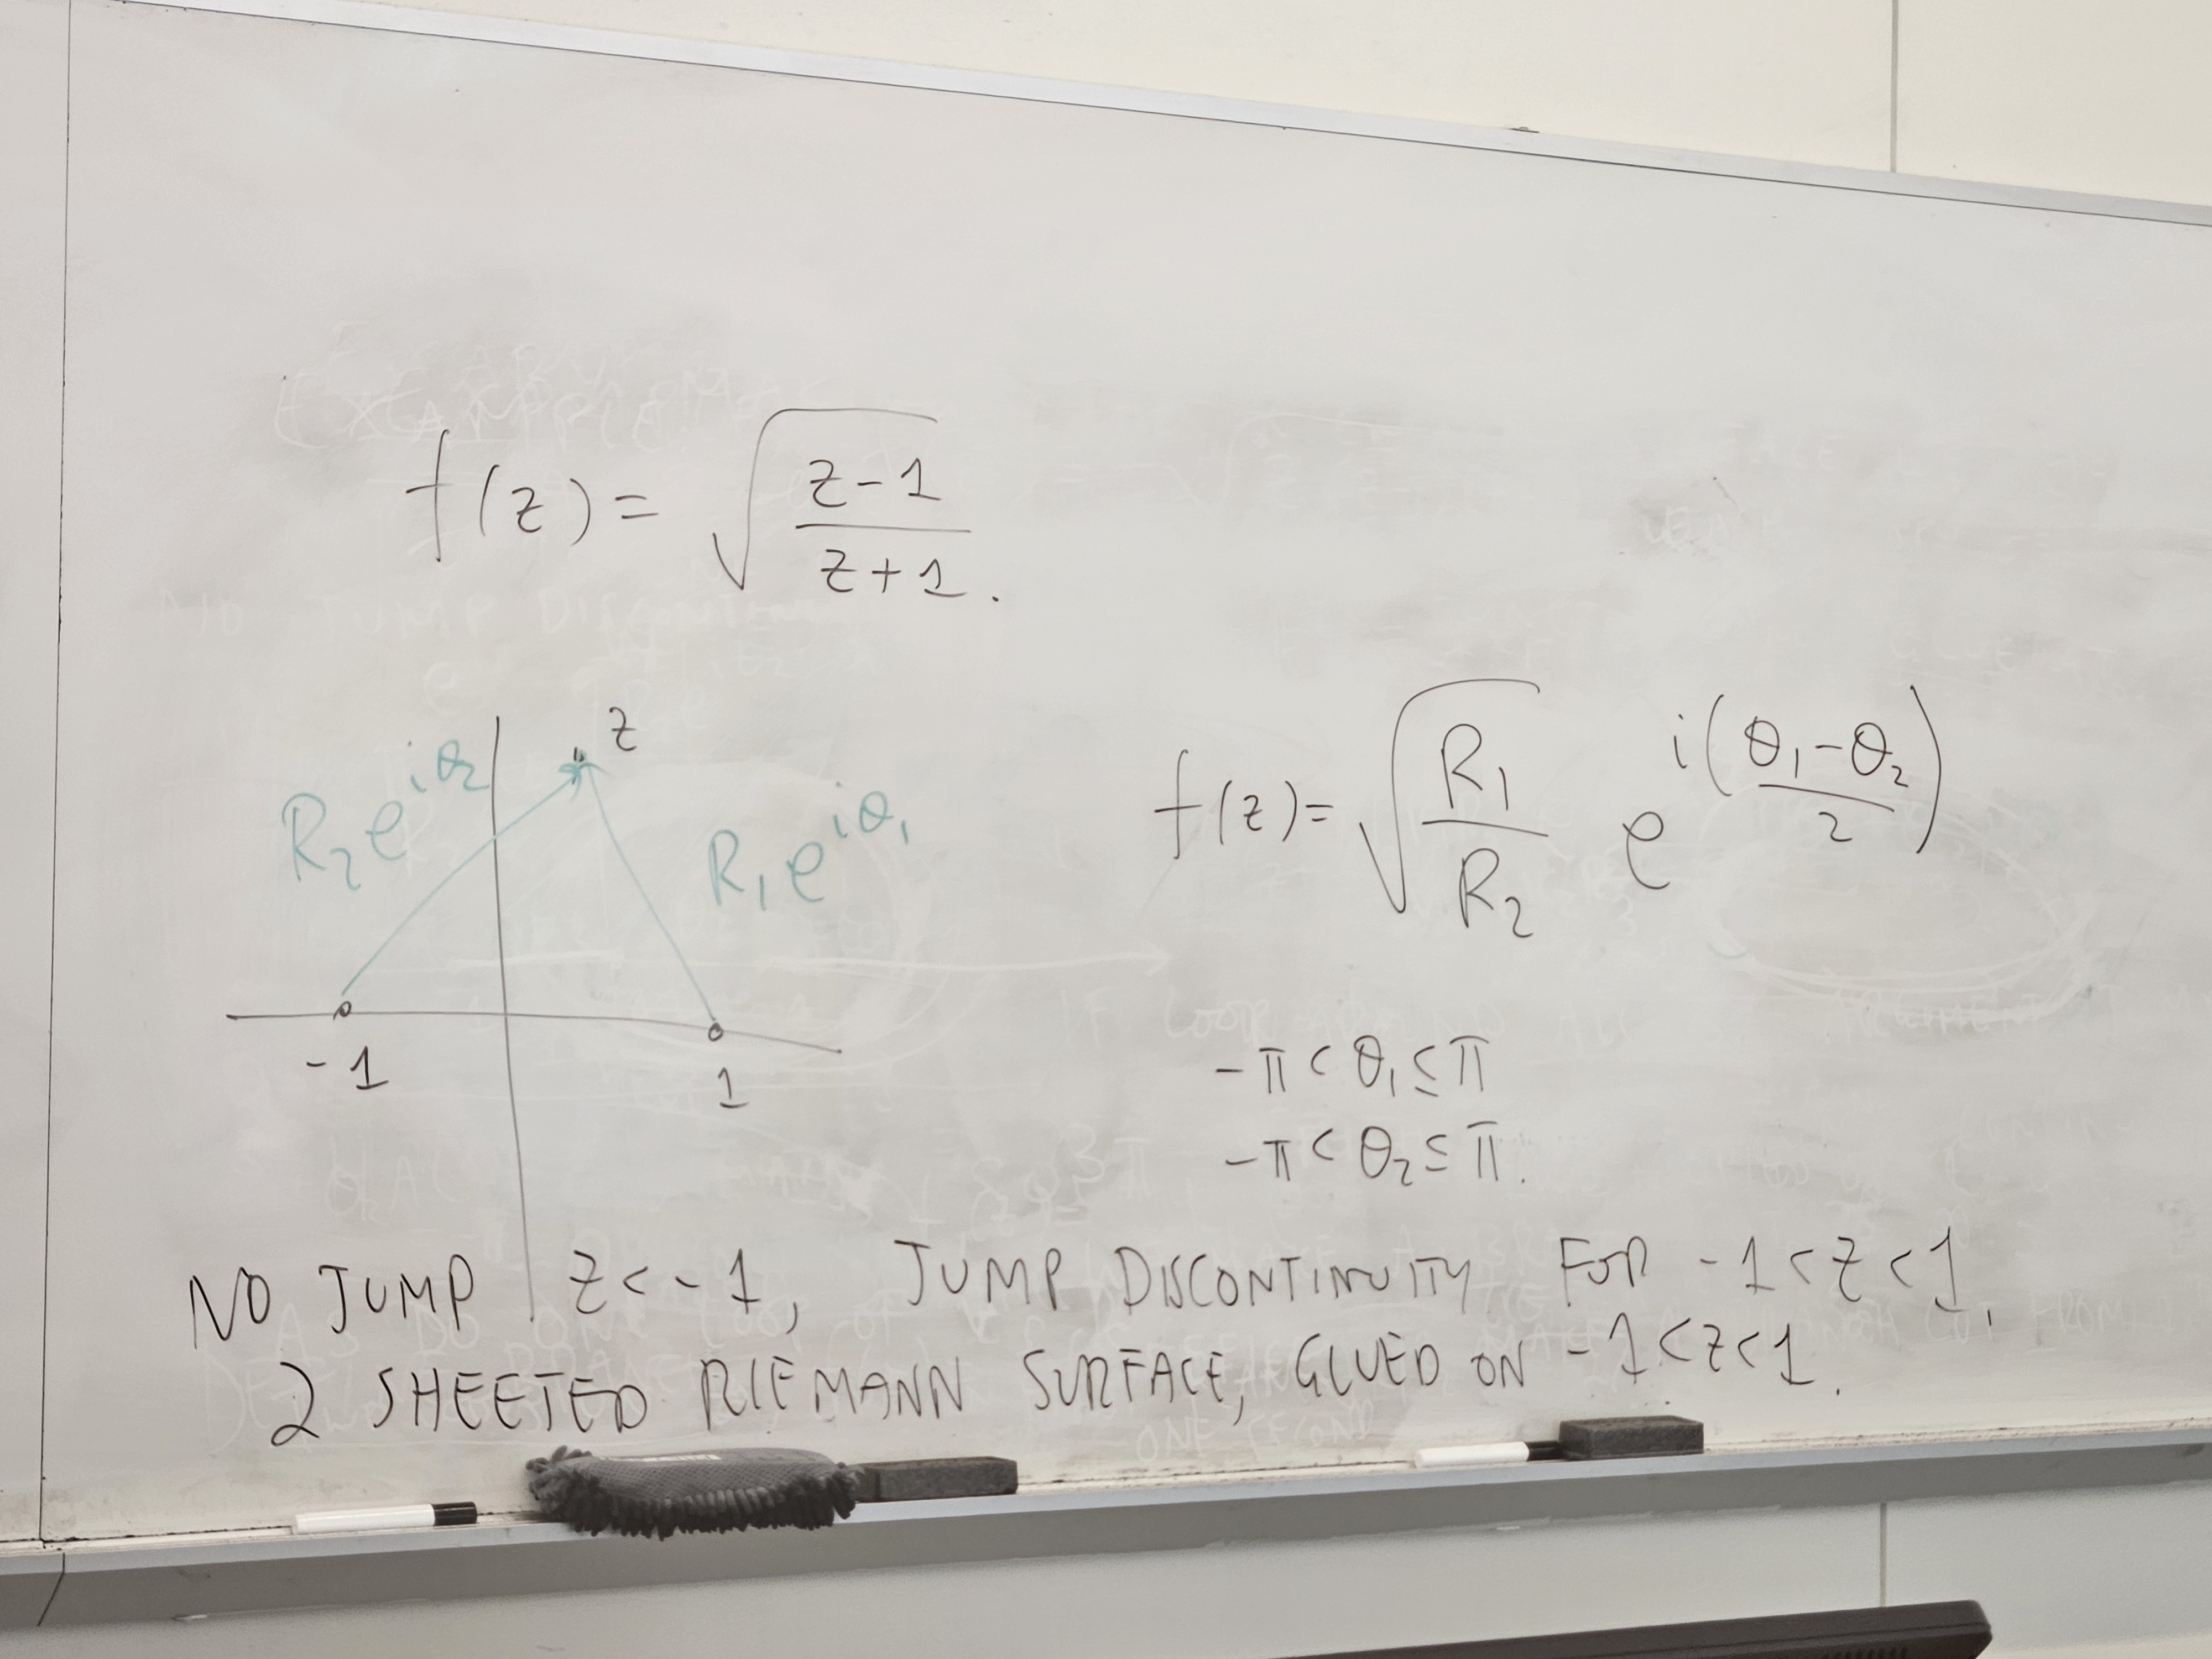 f(z) = √((z-1)/(z+1)).
z
R₂e^{iθ₂}
R₁e^{iθ₁}
-1
1
f(z) = √(R₁/R₂) e^{i((θ₁-θ₂)/2)}
-π < θ₁ ≤ π
-π < θ₂ ≤ π.
NO JUMP z < -1, JUMP DISCONTINUITY FOR -1 < z < 1.
2 SHEETED RIEMANN SURFACE, GLUED ON -1 < z < 1.